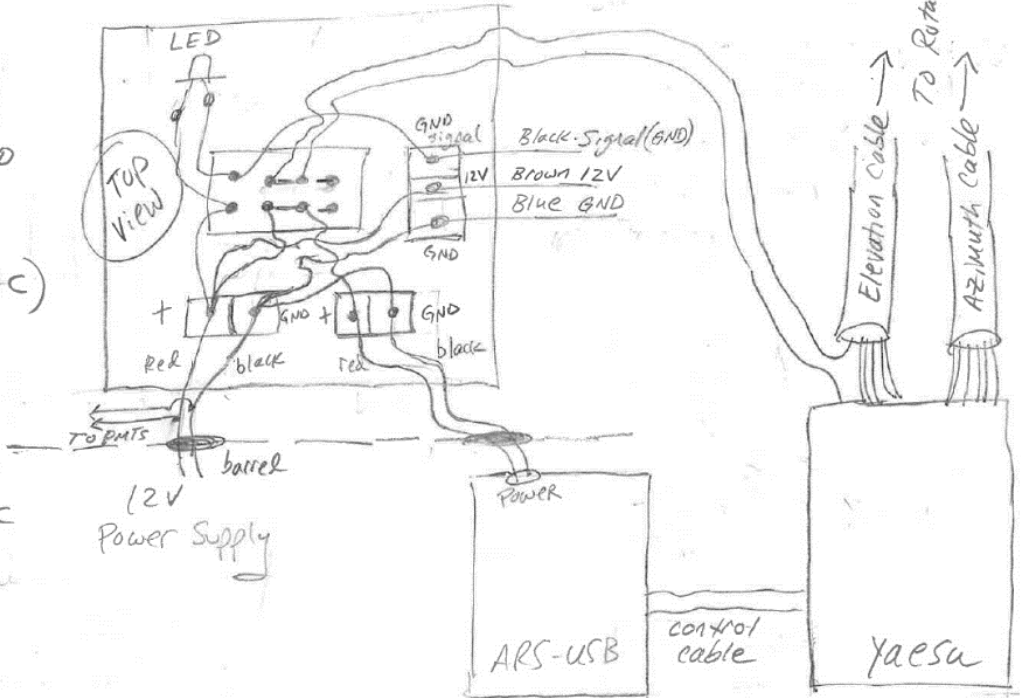 LED
TOP
VIEW
GND
signal
Black-Signal(GND)
12V
Brown 12V
Blue GND
GND
+
GND
+
GND
Red
black
red
black
TO PMTS
barrel
12V
Power Supply
Power
ARS-USB
control
cable
Yaesu
Elevation Cable
TO
Azimuth Cable
C)